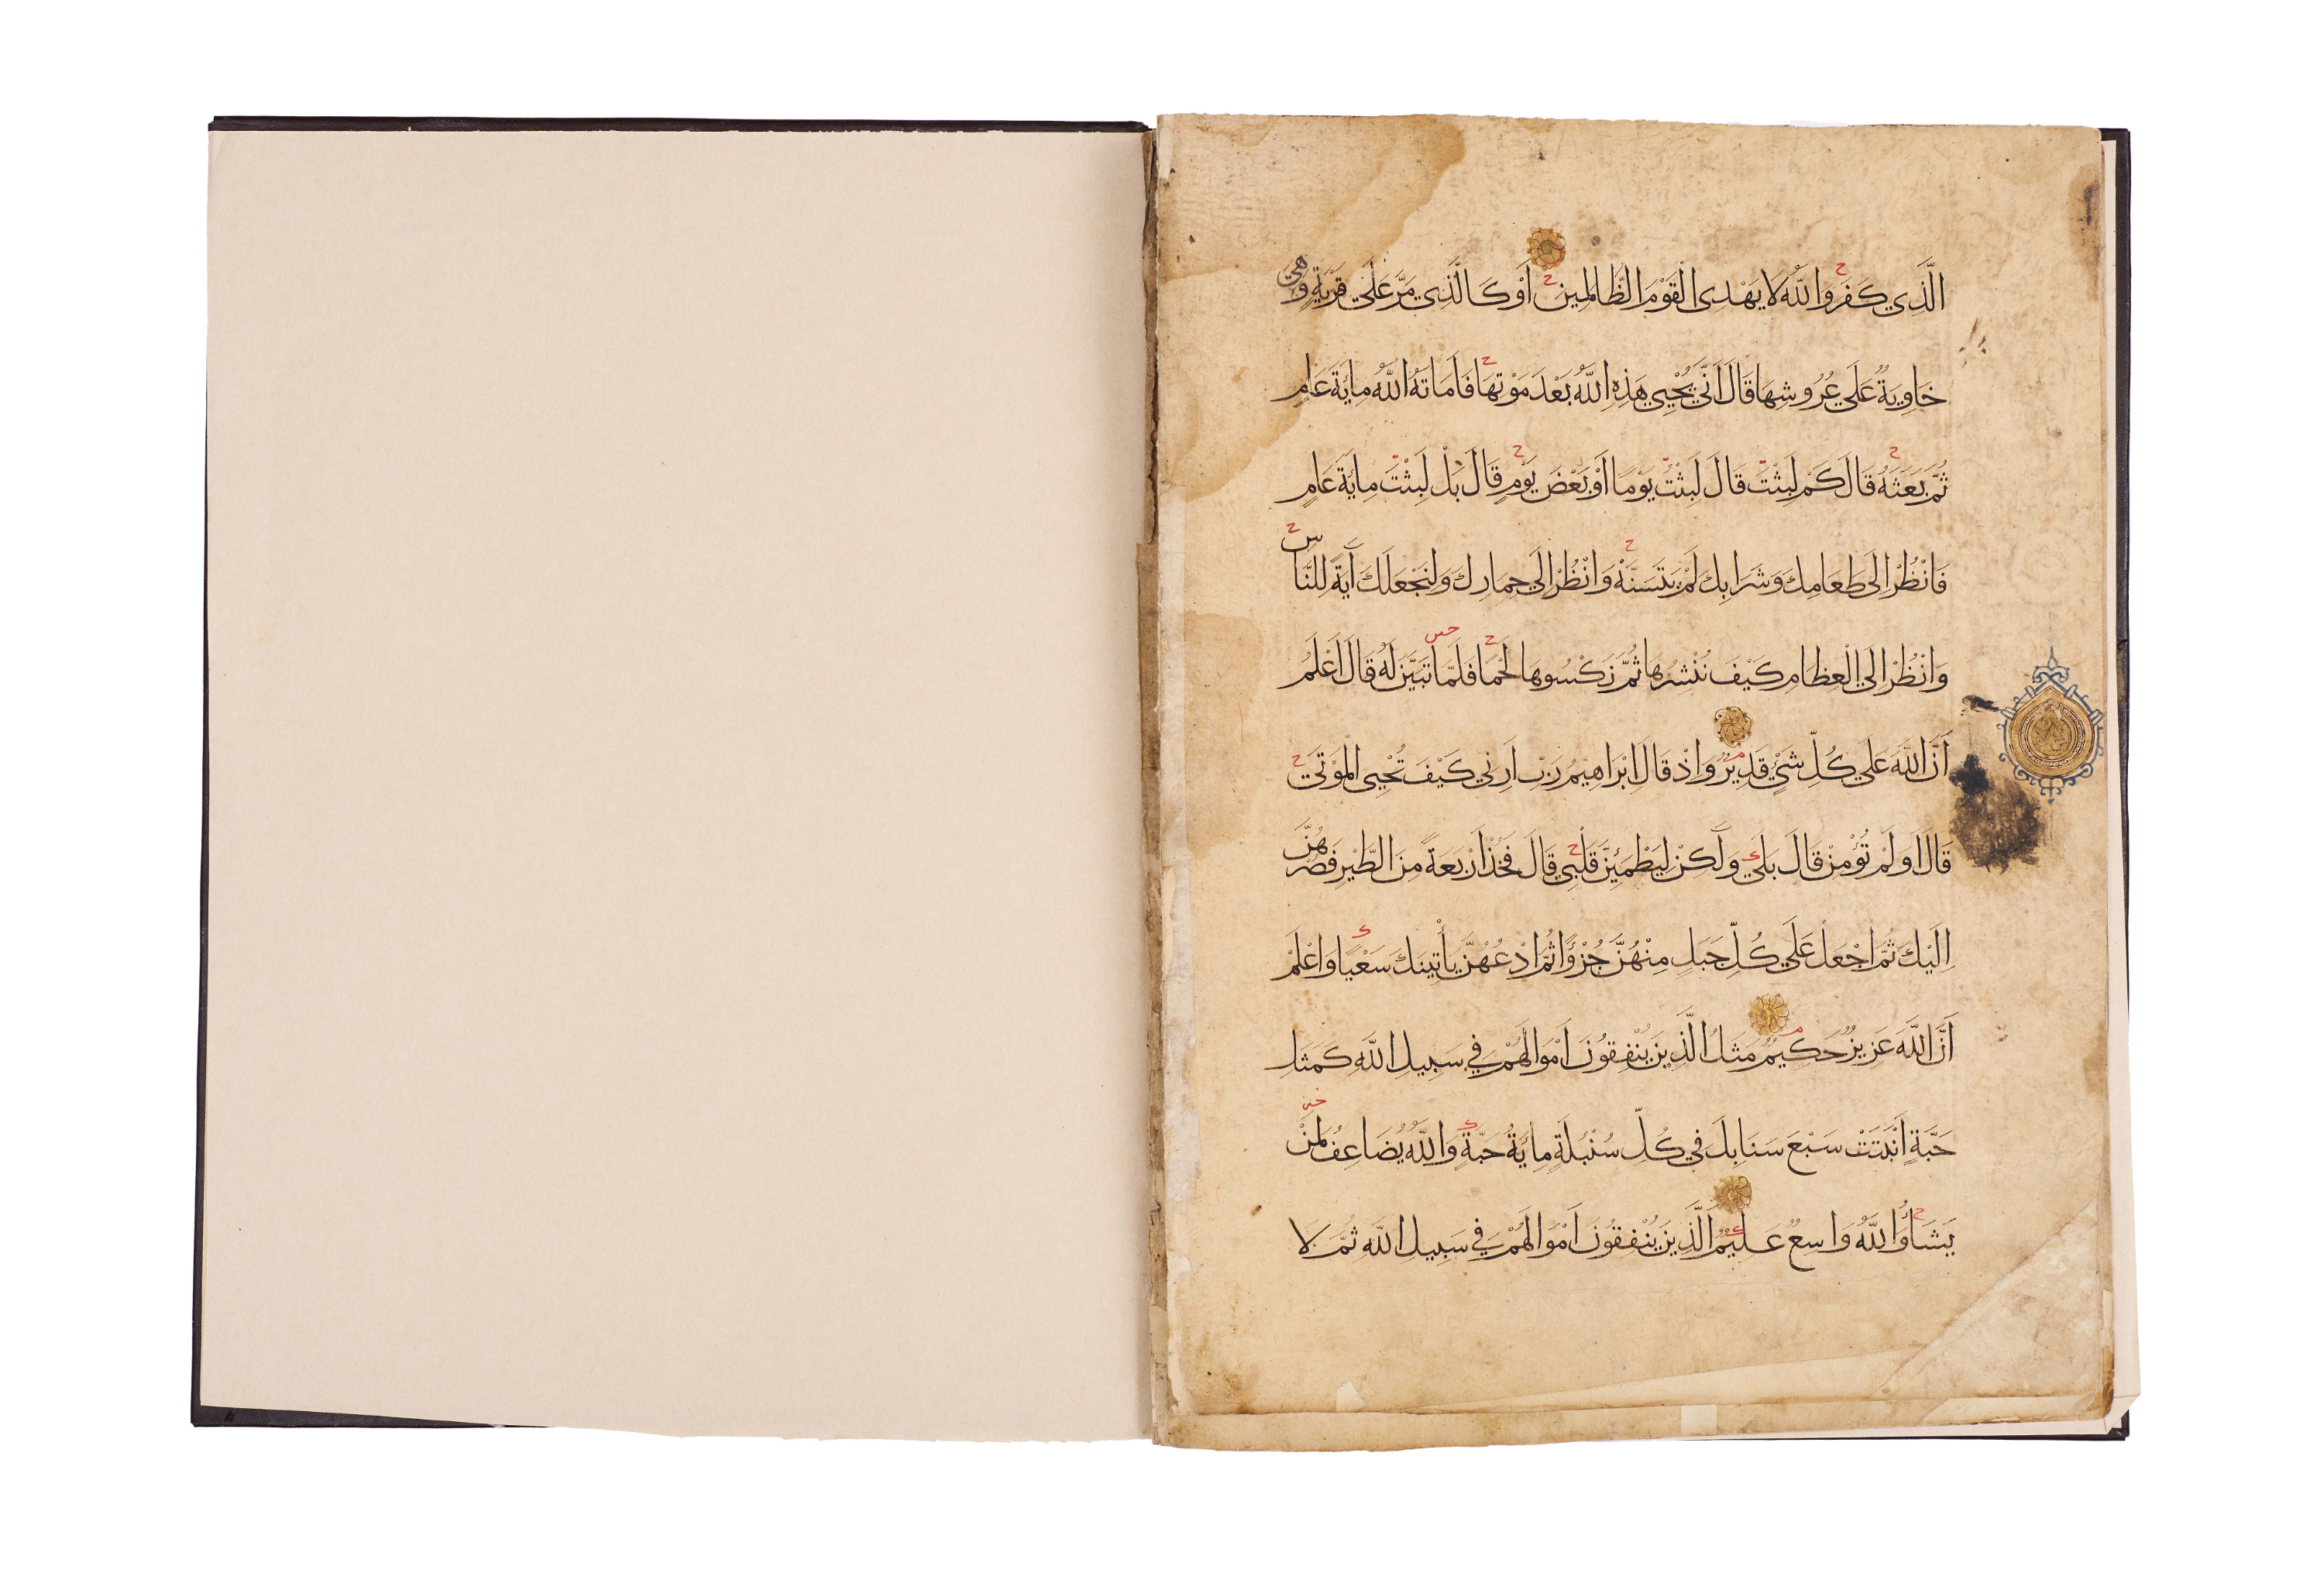 الَّذِي كَفَرَ وَاللَّهُ لَا يَهْدِي الْقَوْمَ الظَّالِمِينَ أَوْ كَالَّذِي مَرَّ عَلَي قَرْيَةٍ وَهِيَ
خَاوِيَةٌ عَلَي عُرُوشِهَا قَالَ اَنَّي يُحْيِي هَذِهِ اللَّهُ بَعْدَ مَوْتِهَا فَاَمَاتَهُ اللَّهُ مِايَةَ عَامٍ
ثُمَّ بَعَثَهُ قَالَ كَمْ لَبِثْتَ قَالَ لَبِثْتُ يَوْمًا اَوْ بَعْضَ يَوْمٍ قَالَ بَلْ لَبِثْتَ مِايَةَ عَامٍ
فَانْظُرْ اِلَي طَعَامِكَ وَشَرَابِكَ لَمْ يَتَسَنَّهْ وَانْظُرْ اِلَي حِمَارِكَ وَلِنَجْعَلَكَ آيَةً لِلنَّاسِ
وَانْظُرْ اِلَي الْعِظَامِ كَيْفَ نُنْشِرُهَا ثُمَّ نَكْسُوهَا لَحْمًا فَلَمَّا تَبَيَّنَ لَهُ قَالَ اَعْلَمُ
اَنَّ اللَّهَ عَلَي كُلِّ شَيْءٍ قَدِيرٌ وَاِذْ قَالَ اِبْرَاهِيمُ رَبِّ اَرِنِي كَيْفَ تُحْيِي الْمَوْتَي
قَالَ اَوَلَمْ تُؤْمِنْ قَالَ بَلَي وَلَكِنْ لِيَطْمَئِنَّ قَلْبِي قَالَ فَخُذْ اَرْبَعَةً مِنَ الطَّيْرِ فَصُرْهُنَّ
اِلَيْكَ ثُمَّ اجْعَلْ عَلَي كُلِّ جَبَلٍ مِنْهُنَّ جُزْؤًا ثُمَّ ادْعُهُنَّ يَأْتِينَكَ سَعْيًا وَاعْلَمْ
اَنَّ اللَّهَ عَزِيزٌ حَكِيمٌ مَثَلُ الَّذِينَ يُنْفِقُونَ اَمْوَالَهُمْ فِي سَبِيلِ اللَّهِ كَمَثَلِ
حَبَّةٍ اَنْبَتَتْ سَبْعَ سَنَابِلَ فِي كُلِّ سُنْبُلَةٍ مِايَةُ حَبَّةٍ وَاللَّهُ يُضَاعِفُ لِمَنْ
يَشَاءُ وَاللَّهُ وَاسِعٌ عَلِيمٌ اَلَّذِينَ يُنْفِقُونَ اَمْوَالَهُمْ فِي سَبِيلِ اللَّهِ ثُمَّ لَا